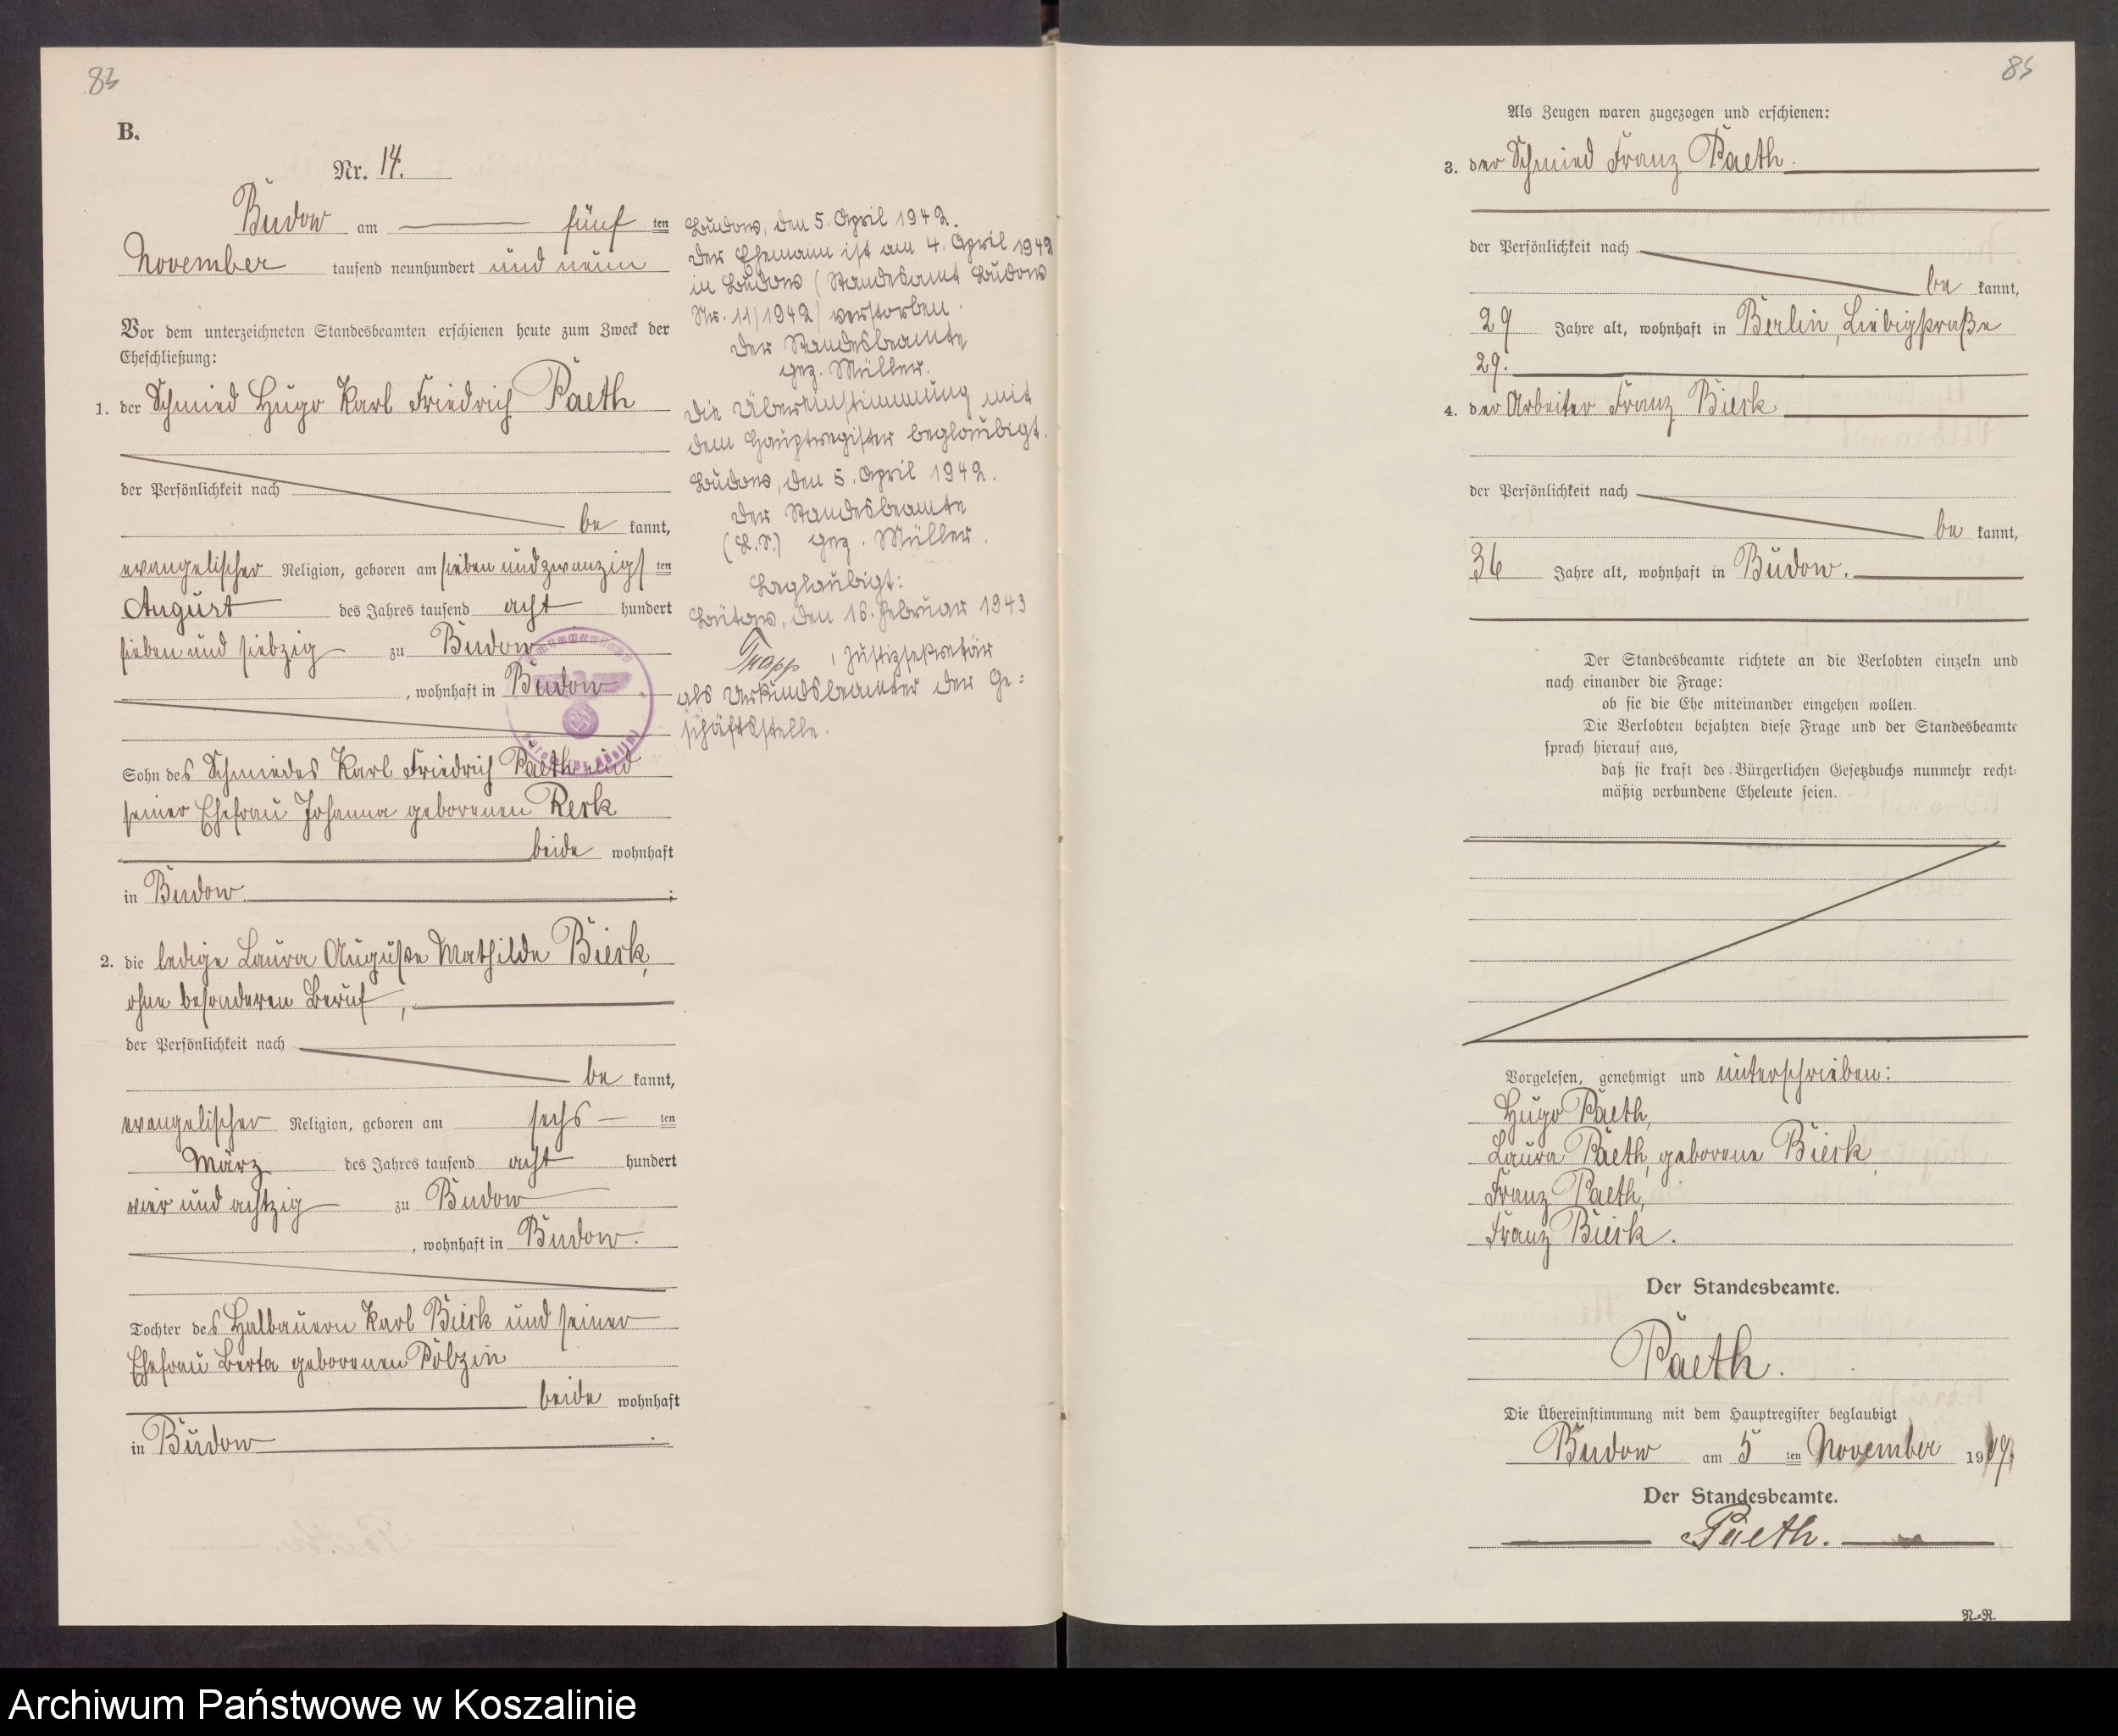 83
B.
Nr. 14.
Budow am fünf ten
November tausend neunhundert und neun
Vor dem unterzeichneten Standesbeamten erschienen heute zum Zweck der
Eheschließung:
1. der Schmied Hugo Karl Friedrich Paeth
der Persönlichkeit nach
be kannt,
evangelischer Religion, geboren am sieben und zwanzigs ten
August des Jahres tausend acht hundert
sieben und siebzig zu Budow
, wohnhaft in Budow
Sohn des Schmiedes Karl Friedrich Paeth und
seiner Ehefrau Johanna geborenen Resk
beide wohnhaft
in Budow ;
2. die ledige Laura Auguste Mathilde Biesk,
ohne besonderen Beruf,
der Persönlichkeit nach
be kannt,
evangelischer Religion, geboren am sechs ten
März des Jahres tausend acht hundert
vier und achtzig zu Budow
, wohnhaft in Budow.
Tochter des Halbauern Karl Biesk und seiner
Ehefrau Berta geborenen Polzin
beide wohnhaft
in Budow .
Budow, den 5. April 1942.
Der Ehemann ist am 4. April 1942
in Budow (Standesamt Budow
Nr. 11/1942) verstorben.
Der Standesbeamte
gez. Müller.
Die Übereinstimmung mit
dem Hauptregister beglaubigt.
Budow, den 5. April 1942.
Der Standesbeamte
(L.S.) gez. Müller.
Beglaubigt:
Bütow, den 16. Februar 1943
, Justizsekretär
als Urkundsbeamter der Ge=
schäftsstelle.
85
Als Zeugen waren zugezogen und erschienen:
3. der Schmied Franz Paeth.
der Persönlichkeit nach
be kannt,
29 Jahre alt, wohnhaft in Berlin, Liebigstraße
29.
4. der Arbeiter Franz Biesk
der Persönlichkeit nach
be kannt,
36 Jahre alt, wohnhaft in Budow.
Der Standesbeamte richtete an die Verlobten einzeln und
nach einander die Frage:
ob sie die Ehe miteinander eingehen wollen.
Die Verlobten bejahten diese Frage und der Standesbeamte
sprach hierauf aus,
daß sie kraft des Bürgerlichen Gesetzbuchs nunmehr recht=
mäßig verbundene Eheleute seien.
Vorgelesen, genehmigt und unterschrieben:
Hugo Paeth,
Laura Paeth, geborene Biesk,
Franz Paeth,
Franz Biesk.
Der Standesbeamte.
Paeth.
Die Übereinstimmung mit dem Hauptregister beglaubigt
Budow am 5 ten November 1909.
Der Standesbeamte.
Paeth.
N.=R.
Archiwum Państwowe w Koszalinie